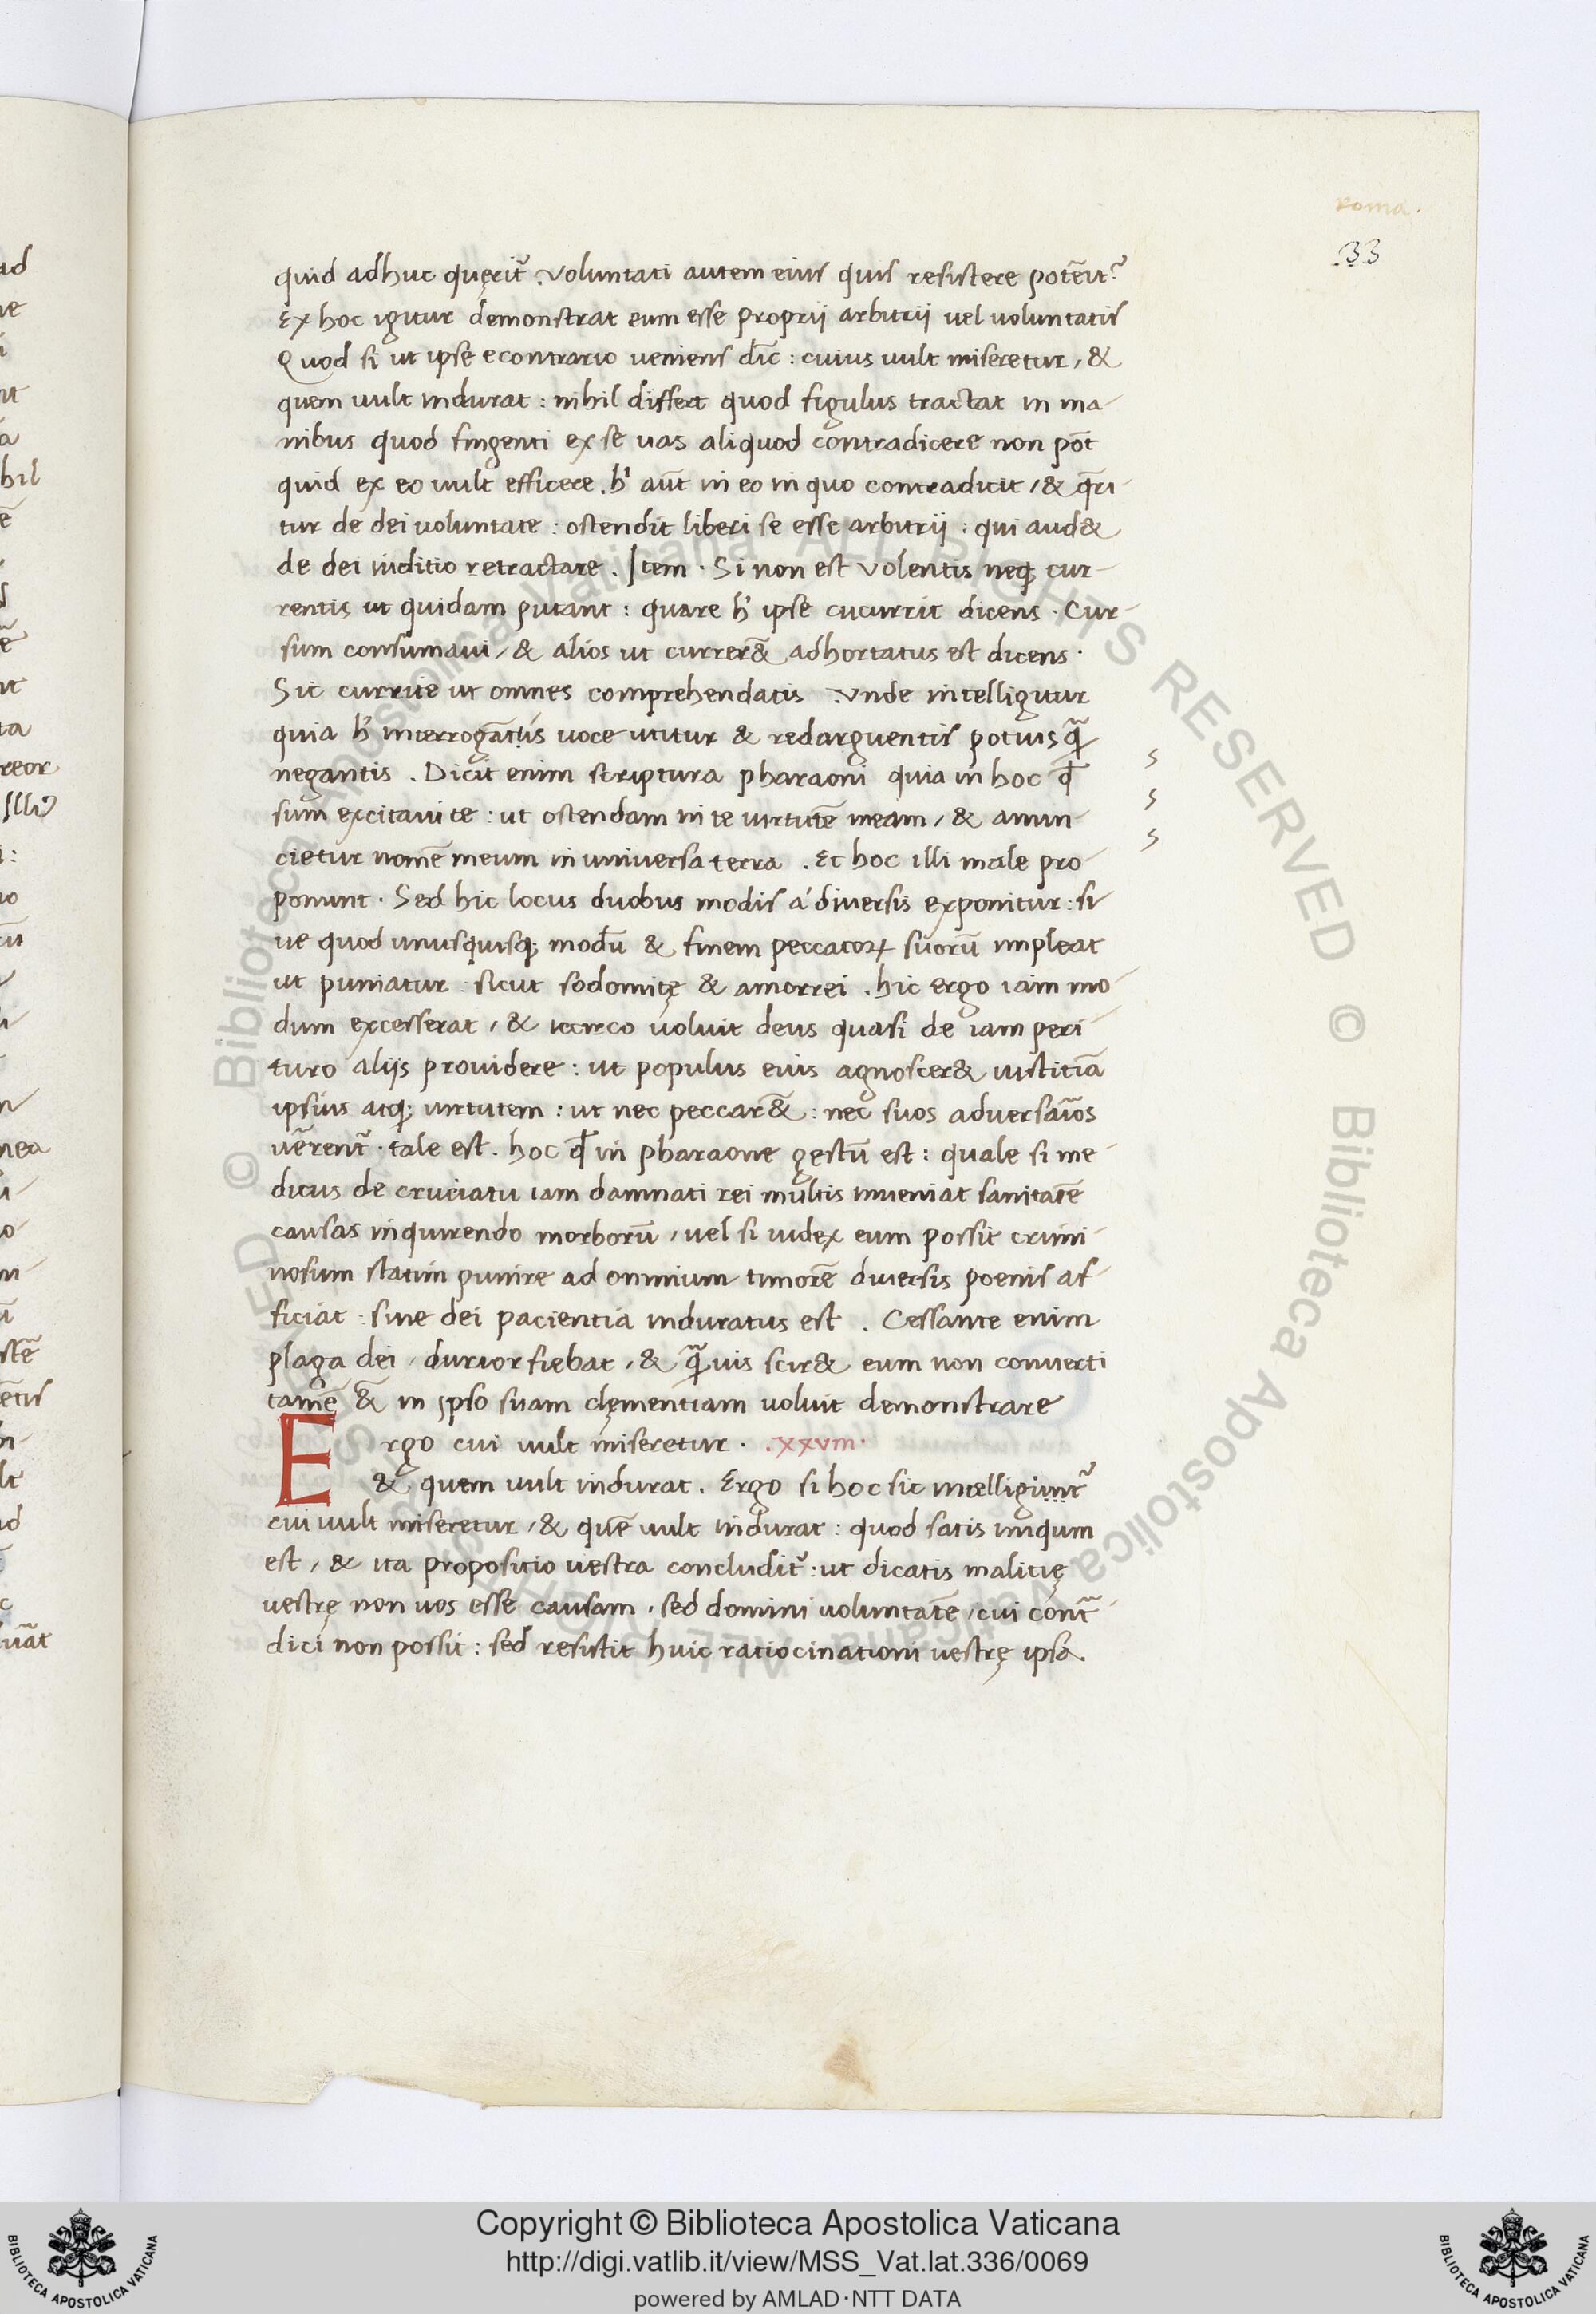 roma.
33
quid adhuc quęrit᷉. Voluntati autem eius quis resistere potẽit?
Ex hoc igitur demonstrat eum esse proprij arbitrij vel voluntatis
Quod si ut ipse econtrario veniens dic̄: cuius uult miseretur, &
quem uult indurat: nihil differt quod figulus tractat in ma-
nibus quod fingenti ex se uas aliquod contradicere non pōt
quid ex eo uult efficere. h' aūt in eo in quo contradicit, & q̄ri-
tur de dei voluntate: ostendit liberi se esse arbitrij: qui aud&
de dei iuditio retractare. Item. Si non est volentis neq; cur-
rentis ut quidam putant: quare h' ipse cucurrit dicens. Cur-
sum consumavi, & alios ut currer& adhortatus est dicens.
Sic currite ut omnes comprehendatis. Vnde intelligitur
quia h' interrogātis voce utitur & redarguentis potius q̄
negantis. Dicit enim scriptura pharaoni quia in hoc ip̄
sum excitavi te: ut ostendam in te virtutē meam, & annun-
cietur nomē meum in universa terra. Et hoc illi male pro-
ponunt. Sed hic locus duobus modis a diversis exponitur: si-
ve quod unusquisq; modū & finem peccatoꝝ suorū impleat
ut puniatur: sicut sodomitę & amorrei. hic ergo iam mo-
dum excesserat, & iccirco voluit deus quasi de iam peri-
turo alijs providere: ut populus eius agnoscer& iustitiā
ipsius atq; virtutem: ut nec peccar&: nec suos adversaios
vērent᷉. tale est. hoc qđ in pharaone gestū est: quale si me-
dicus de cruciatu iam damnati rei multis inveniat sanitatē
causas inquirendo morborū, vel si iudex eum possit crimi-
nosum statim punire ad omnium timorē diversis poenis af-
ficiat: sive dei pacientia induratus est. Cessante enim
plaga dei, durior fiebat, & q̄vis scir& eum non converti
tamē & in ipso suam clęmentiam voluit demonstrare
Ergo cui vult miseretur. .xxviii.
& quem vult indurat. Ergo si hoc sic intelligunt᷉
cui vult miseretur, & quē uult indurat: quod satis iniqum
est, & ita propositio vestra concludit᷉: ut dicatis malicię
vestrę non vos esse causam, sed domini voluntatē, cui cont᷉-
dici non possit: sed resistit huic ratiocinationi vestrę ipsa.
Copyright © Biblioteca Apostolica Vaticana
http://digi.vatlib.it/view/MSS_Vat.lat.336/0069
powered by AMLAD·NTT DATA